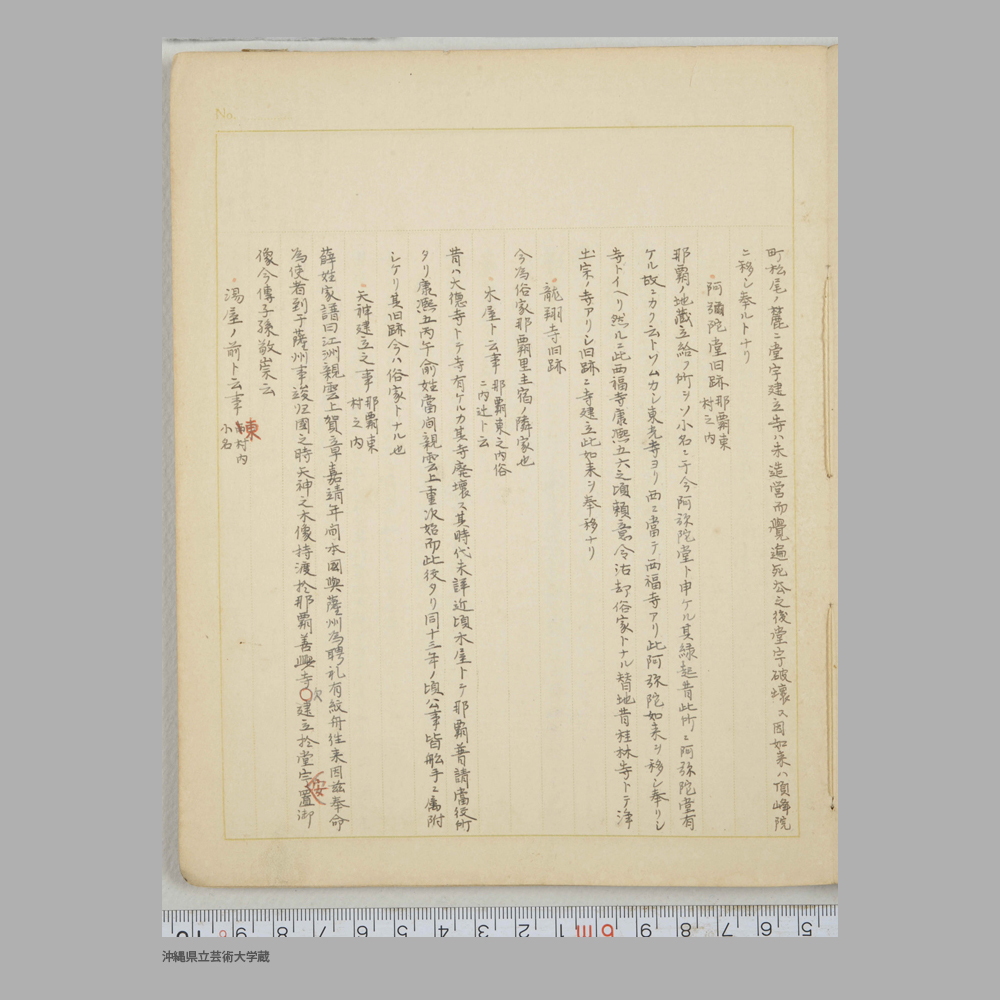 町松尾ノ麓ニ堂宇建立寺ハ未造営而覺遍死去之後堂宇破壊ス因如来ハ頂峰院
ニ移シ奉ルトナリ
阿彌陀堂旧跡 那覇東村之内
那覇ノ地蔵立給フ所ヲソ小名ニテ今阿弥陀堂ト申ケル其縁起昔此所ニ阿弥陀堂有
ケル故ニカク云トソムカシ東光寺ヨリ西ニ當テ西福寺アリ此阿弥陀如来ヲ移シ奉リシ
寺トイヘリ然ルニ此西福寺康熈五六之頃頼意令沽却俗家トナル替地昔桂林寺トテ浄
土宗ノ寺アリシ旧跡ニ寺建立此如来ヲ奉移ナリ
龍翔寺旧跡
今為俗家那覇里主宿ノ隣家也
木屋ト云事 那覇東之内俗ニ内辻ト云
昔ハ大徳寺トテ寺有ケルカ其寺廃壊ス其時代未詳近頃木屋トテ那覇普請當役所
タリ康熈五丙午俞姓當間親雲上重次始而此役タリ同十三年ノ頃公事皆舩手ニ属附
シケリ其旧跡今ハ俗家トナル也
天神建立之事 那覇東村之内
薛姓家譜曰江洲親雲上賀章嘉靖年間本國與薩州為聘礼有紋舟往来因茲奉命
為使者到于薩州事竣归國之時天神之木像持渡於那覇善興寺○次建立於堂宇安置御
像今傳子孫敬崇云
湯屋ノ前ト云事 東村内小名
No.
沖縄県立芸術大学蔵